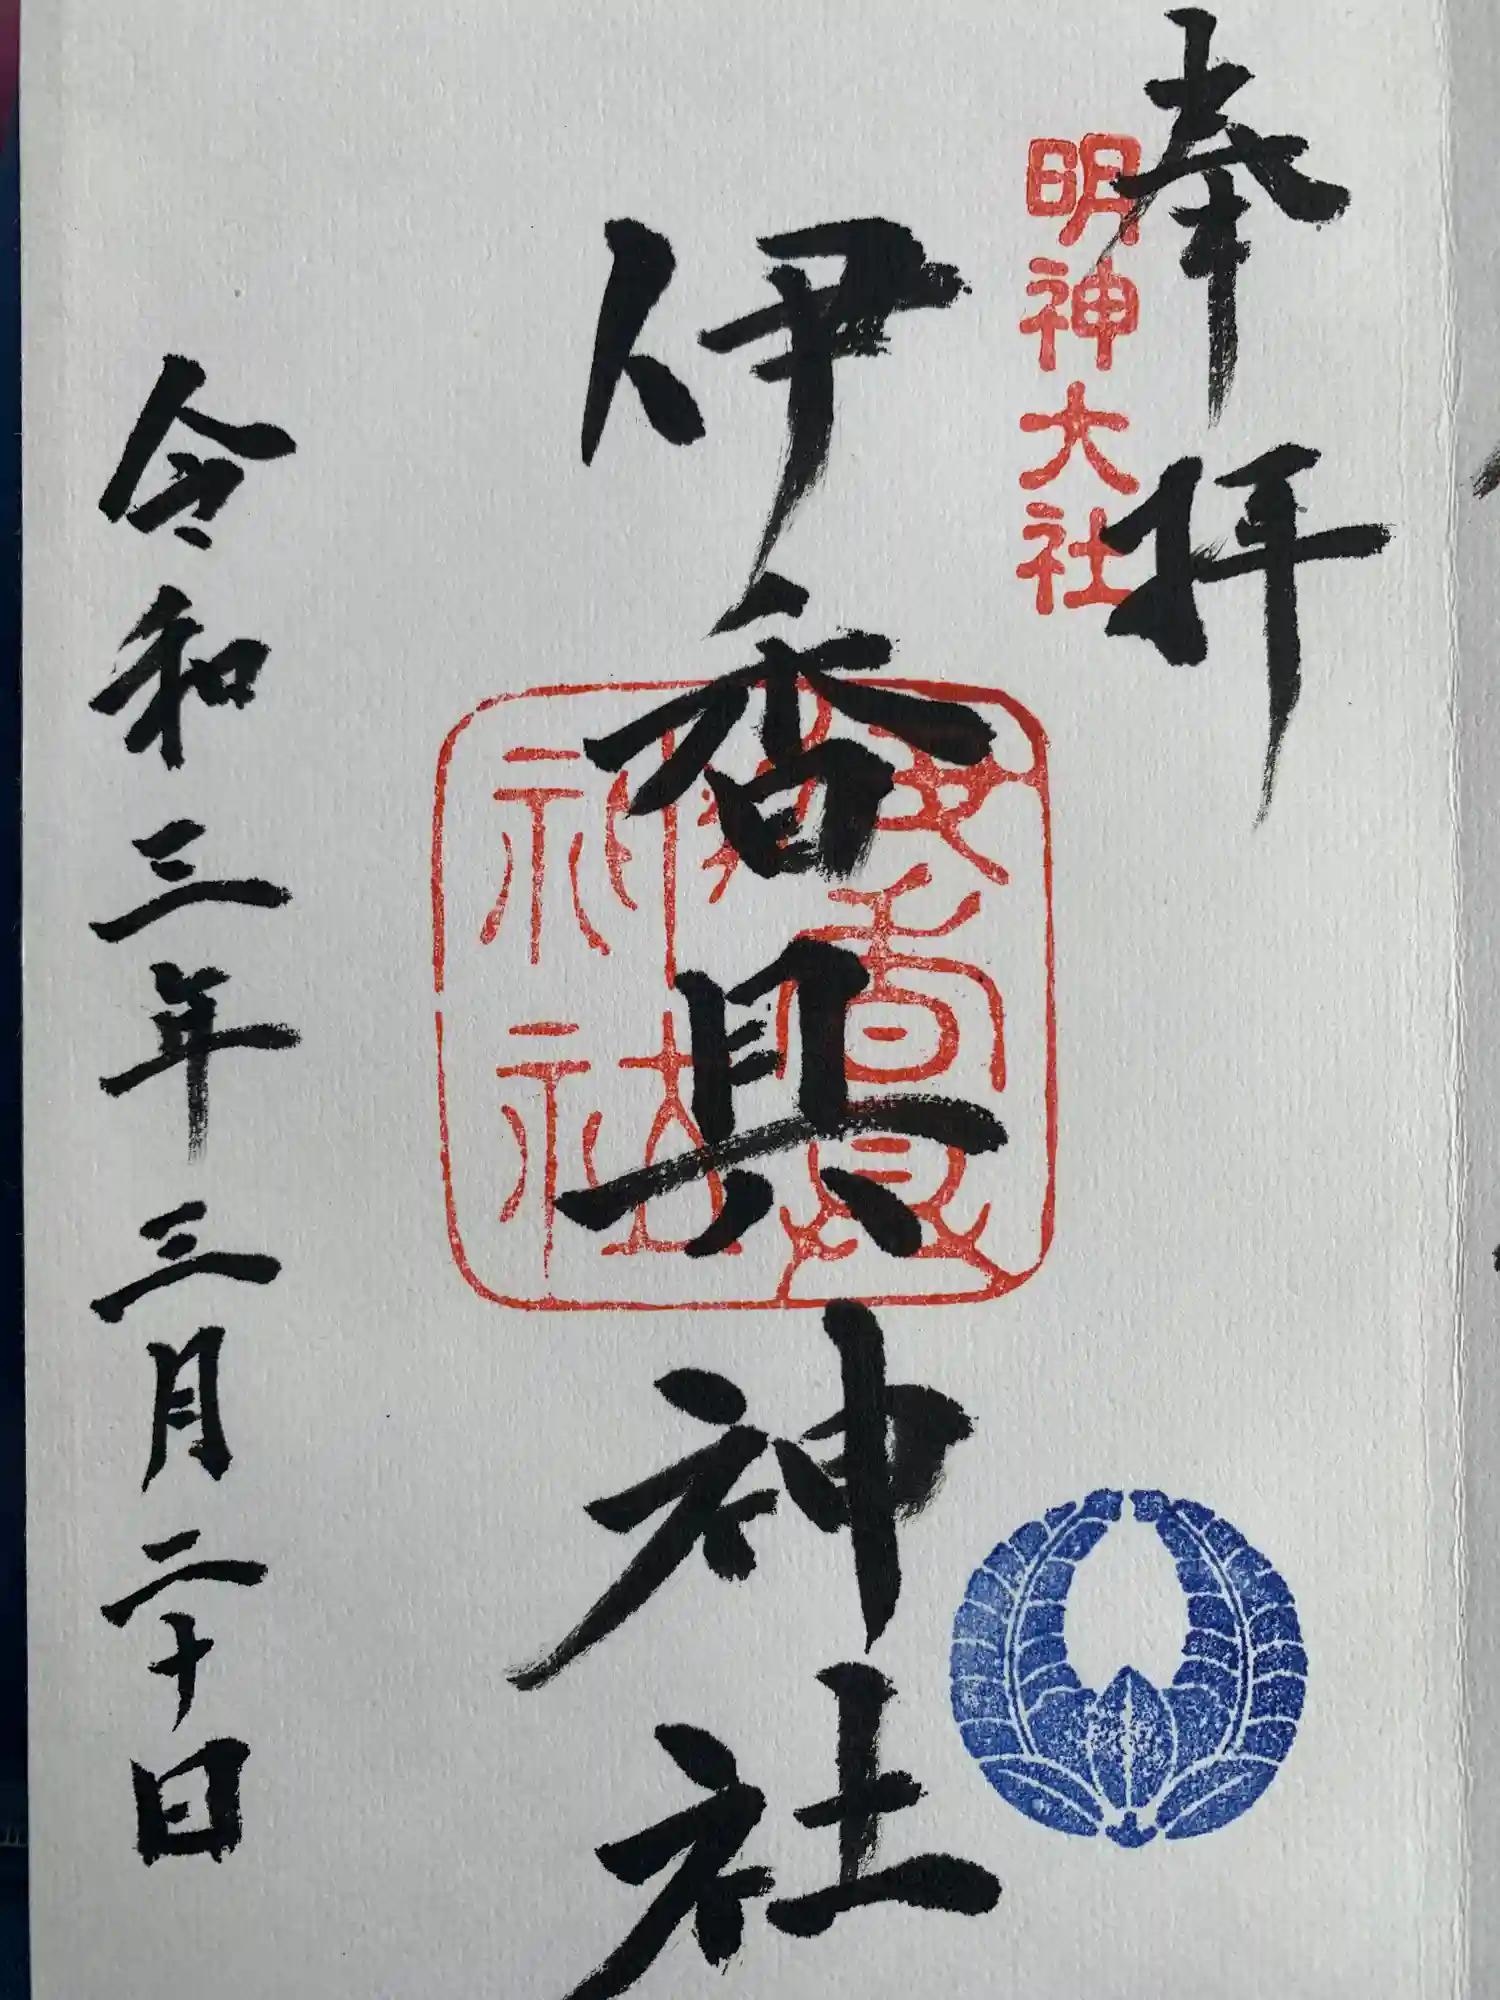 奉拝
明神大社
伊香具神社
令和三年三月二十日